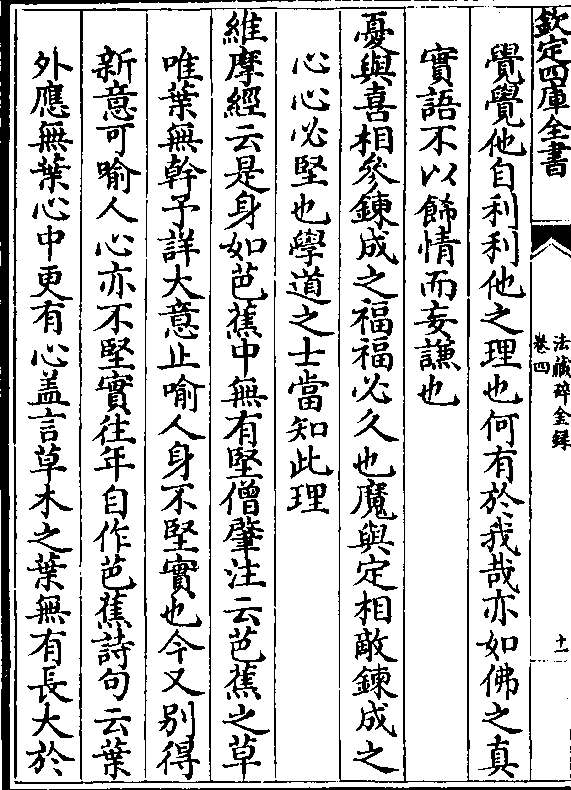 欽定四庫全書
法藏碎金録
卷四
十一
覺覺他自利利他之理也何有於我哉亦如佛之真
實語不以飾情而妄謙也
憂與喜相參鍊成之福福必久也魔與定相敵鍊成之
心心必堅也學道之士當知此理
維摩經云是身如芭蕉中無有堅僧肇注云芭蕉之草
唯葉無幹予詳大意止喻人身不堅實也今又别得
新意可喻人心亦不堅實往年自作芭蕉詩句云葉
外應無葉心中更有心盖言草木之葉無有長大於